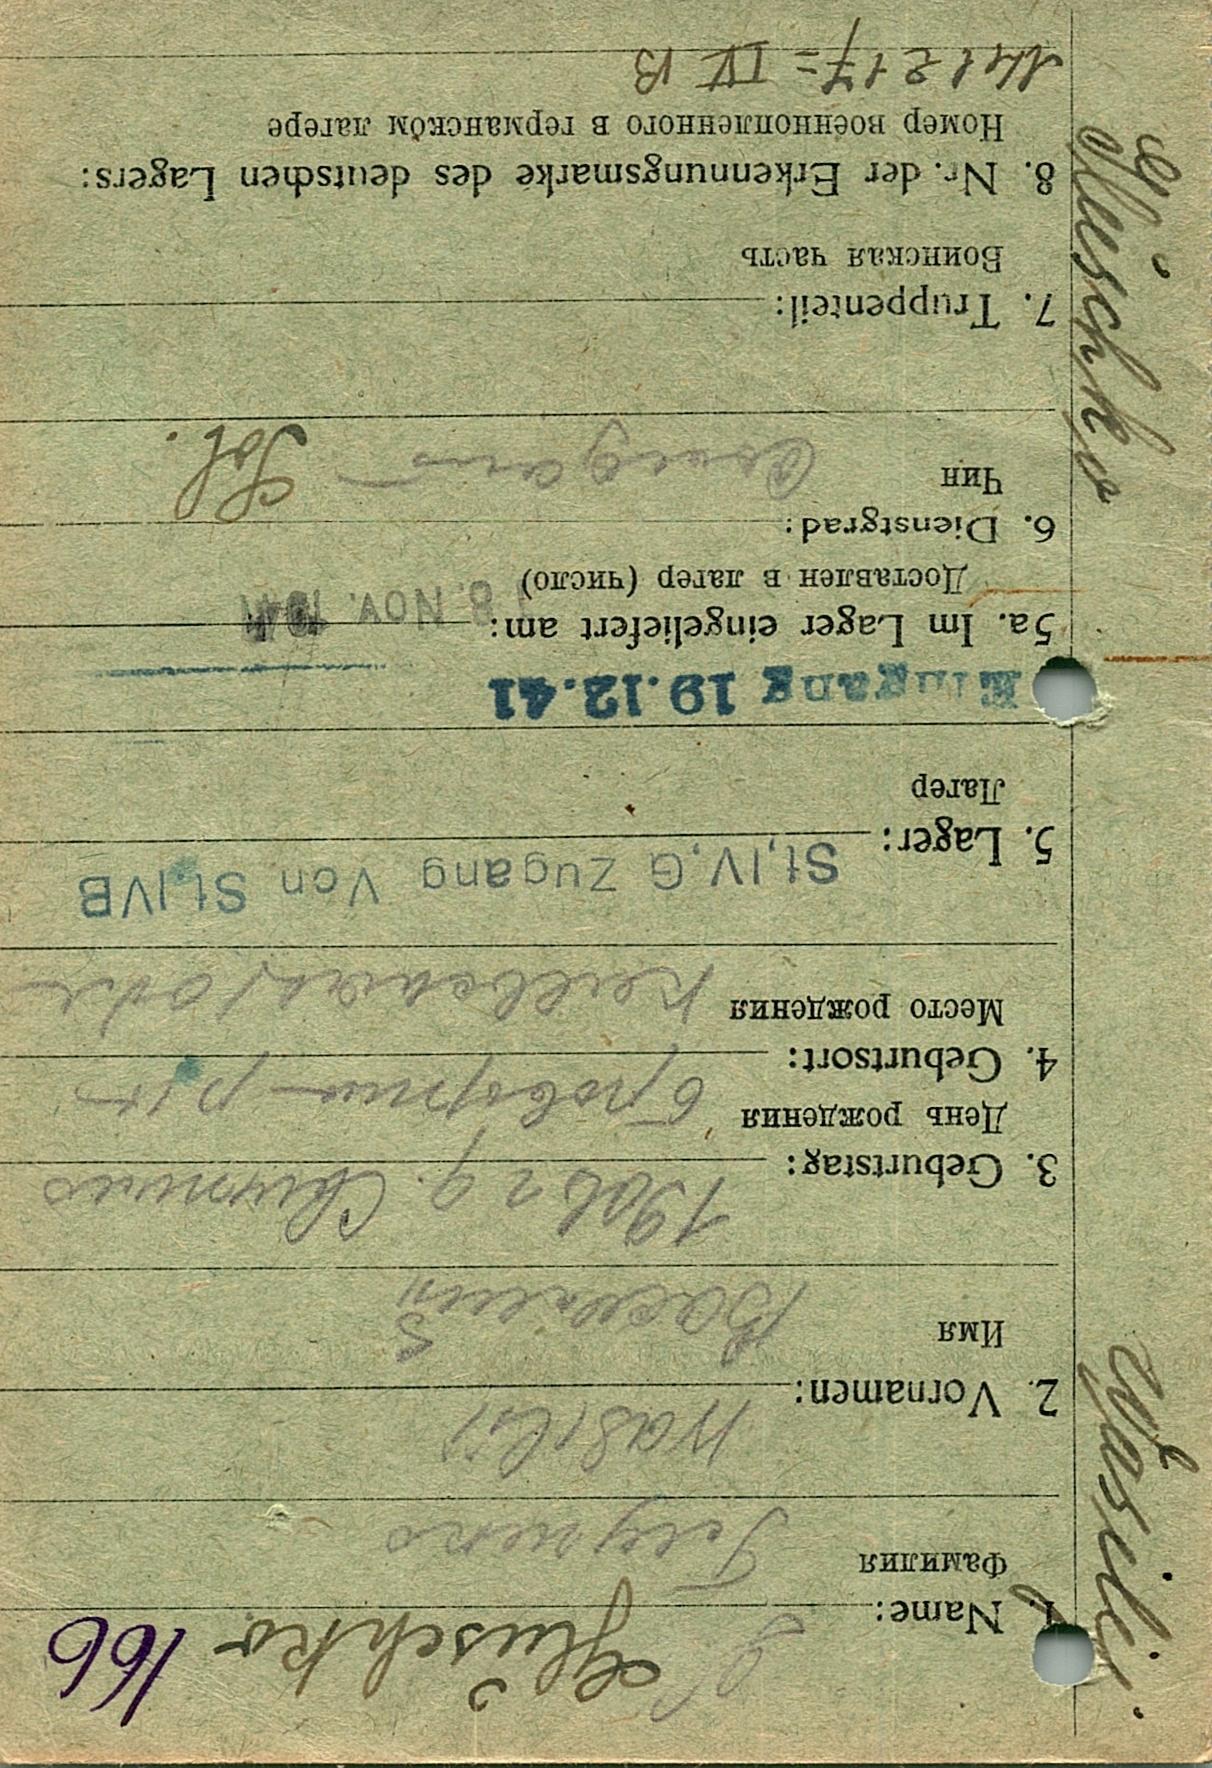 166
Gluschko
1. Name:
Фамилия
Глушко
Wasilij
2. Vornamen:
Имя
Василий
3. Geburtstag:
День рождения
1906 г
4. Geburtsort:
Место рождения
5. Lager: St,IV,G Zugang Von St,IVB
Лагер
Eingang 19.12.41
5a. Im Lager eingeliefert am: 18. NOV. 1941
Доставлен в лагер (число)
6. Dienstgrad: Sol.
Чин
7. Truppenteil:
Воинская часть
8. Nr. der Erkennungsmarke des deutschen Lagers:
Номер военнопленного в германском лагере
141217 = IV B
Gluschko
Wasilij